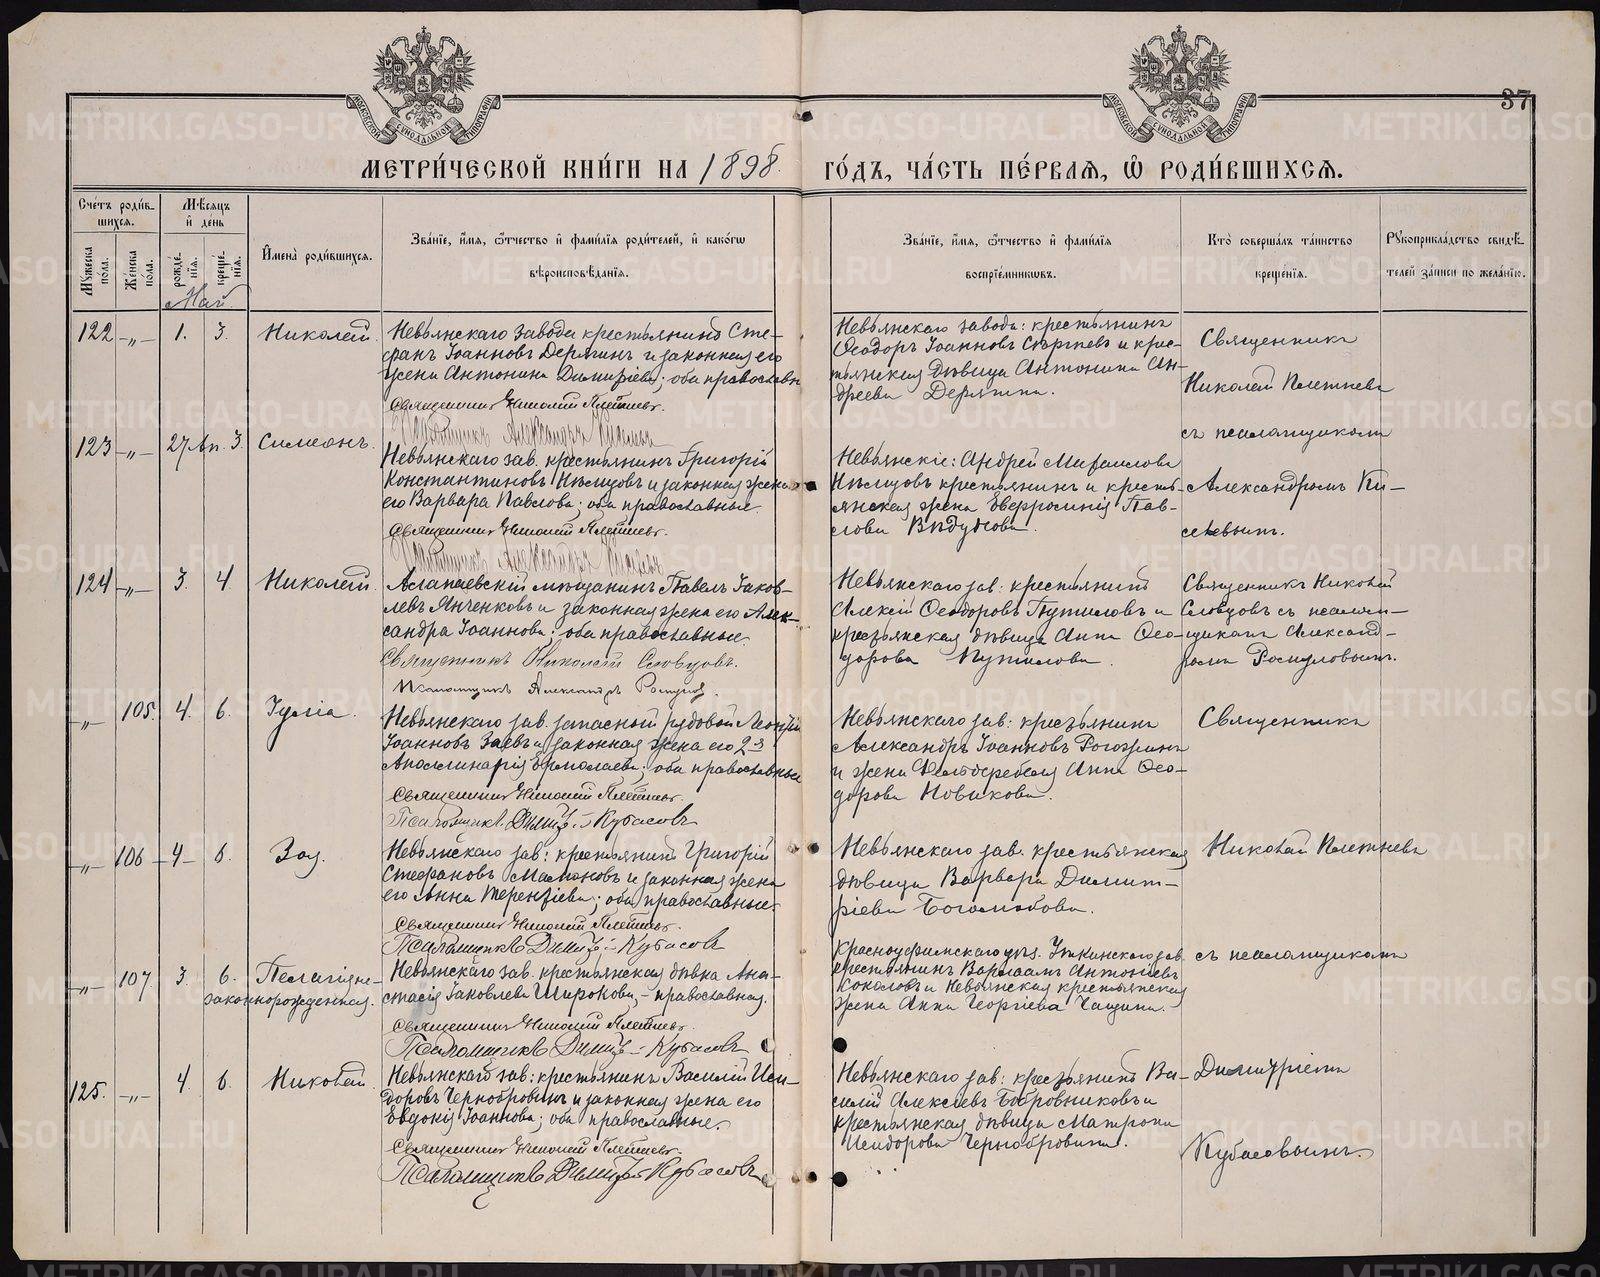 37
МЕТРИ́ЧЕСКОЙ КНИ́ГИ НА 1898 ГО́ДЪ, ЧА́СТЬ ПЕ́РВАѦ, Ѡ РОДИ́ВШИХСѦ.
Сче́тъ роди́в-
шихся.
Мѣ́сяцъ
и де́нь
Имена̀ роди́вшихся.
Зва́нїе, и́мя, ѻ́тчество и фами́лїя роди́телей, и како́гѡ
вѣроисповѣ́данїя.
Зва́нїе, и́мя, ѻ́тчество и фами́лїя
воспрїе́мниковъ.
Кто̀ соверша́лъ та́инство
креще́нїя.
Рꙋкоприкла́дство свидѣ́-
телей за́писи по жела́нїю.
Мꙋ́жеска
пола.
Же́нска
по́ла.
рожде́-
нїя.
креще́-
нїя.
Май
122 -„- 1. 3. Николай.
Невьянскаго завода крестьянинъ Сте-
фанъ Іоанновъ Дерягинъ и законная его
жена Антонина Димитріева; оба православн
Священникъ Николай Плетневъ.
Псаломщикъ Александръ
Невьянскаго завода: крестьянинъ
Ѳеодоръ Іоанновъ Сергѣевъ и крес-
тьянская дѣвица Антонина Ан-
дреева Дерягина.
Священникъ
Николай Плетневъ
съ псаломщикомъ
123 -„- 27 Ап. 3. Симеонъ.
Невьянскаго зав. крестьянинъ Григорій
Константиновъ Нѣмцовъ и законная жена
его Варвара Павлова; оба православные.
Священникъ Николай Плетневъ.
Псаломщикъ Александръ
Невьянскіе: Андрей Михаиловъ
Нѣмцовъ крестьянинъ и кресть-
янская жена Евфросинія Пав-
лова
Александромъ Ки-
селевымъ.
124 -„- 3. 4. Николай.
Алапаевскій мѣщанинъ Павелъ Іаков-
левъ Янченковъ и законная жена его Алек-
сандра Іоаннова; оба православные.
Священникъ Николай Словцовъ.
Псаломщикъ Александръ
Невьянскаго зав: крестьянинъ
Алексій Ѳеодоровъ Путиловъ и
крестьянская дѣвица Анна Ѳео-
дорова Путилова.
Священникъ Николай
Словцовъ съ псалом-
щикомъ Александ-
ромъ
-„- 105. 4. 6. Іулія.
Невьянскаго зав. запасный рядовой Леонтій
Іоанновъ Заевъ и законная жена его 2й
Аполлинарія Ермолаева; оба православные
Священникъ Николай Плетневъ.
Псаломщикъ Димитрій Кубасовъ
Невьянскаго зав: крестьянинъ
Александръ Іоанновъ Рогожинъ
и жена Анна Ѳео-
дорова Новикова.
Священникъ
-„- 106 4 6. Зоя.
Невьянскаго зав: крестьянинъ Григорій
Стефановъ Мамоновъ и законная жена
его Анна Терентіева; оба православные.
Священникъ Николай Плетневъ.
Псаломщикъ Димитрій Кубасовъ
Невьянскаго зав. крестьянская
дѣвица Варвара Димит-
ріева Богомолова.
Николай Плетневъ
-„- 107 3. 6. Пелагія не-
законнорожденная.
Невьянскаго зав. крестьянская дѣвка Ана-
стасія Іаковлева Широкова, - православная.
Священникъ Николай Плетневъ.
Псаломщикъ Димитрій Кубасовъ
Красноуфимскаго уѣз. Уткинскаго зав.
крестьянинъ Варлаамъ Антоніевъ
Соколовъ и Невьянская крестьянская
жена Анна Георгіева Чащина.
съ псаломщикомъ
125. -„- 4. 6. Николай.
Невьянскаго зав: крестьянинъ Василій Иси-
доровъ Чернобровинъ и законная жена его
Евдокія Іоаннова; оба православные.
Священникъ Николай Плетневъ.
Псаломщикъ Димитрій Кубасовъ
Невьянскаго зав: крестьянинъ Ва-
силій Алексѣевъ Бобровниковъ и
крестьянская дѣвица Матрона
Исидорова Чернобровина.
Димитріемъ
Кубасовымъ.
METRIKI.GASO-URAL.RU